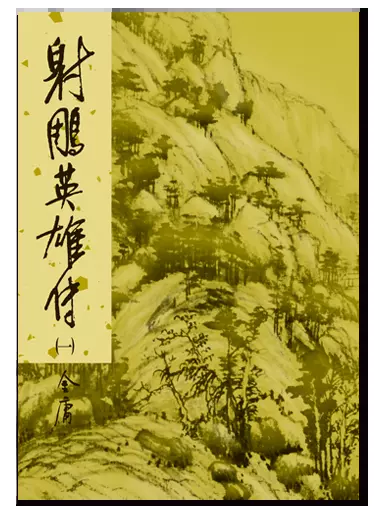 射鵰英雄传
(一)
金庸